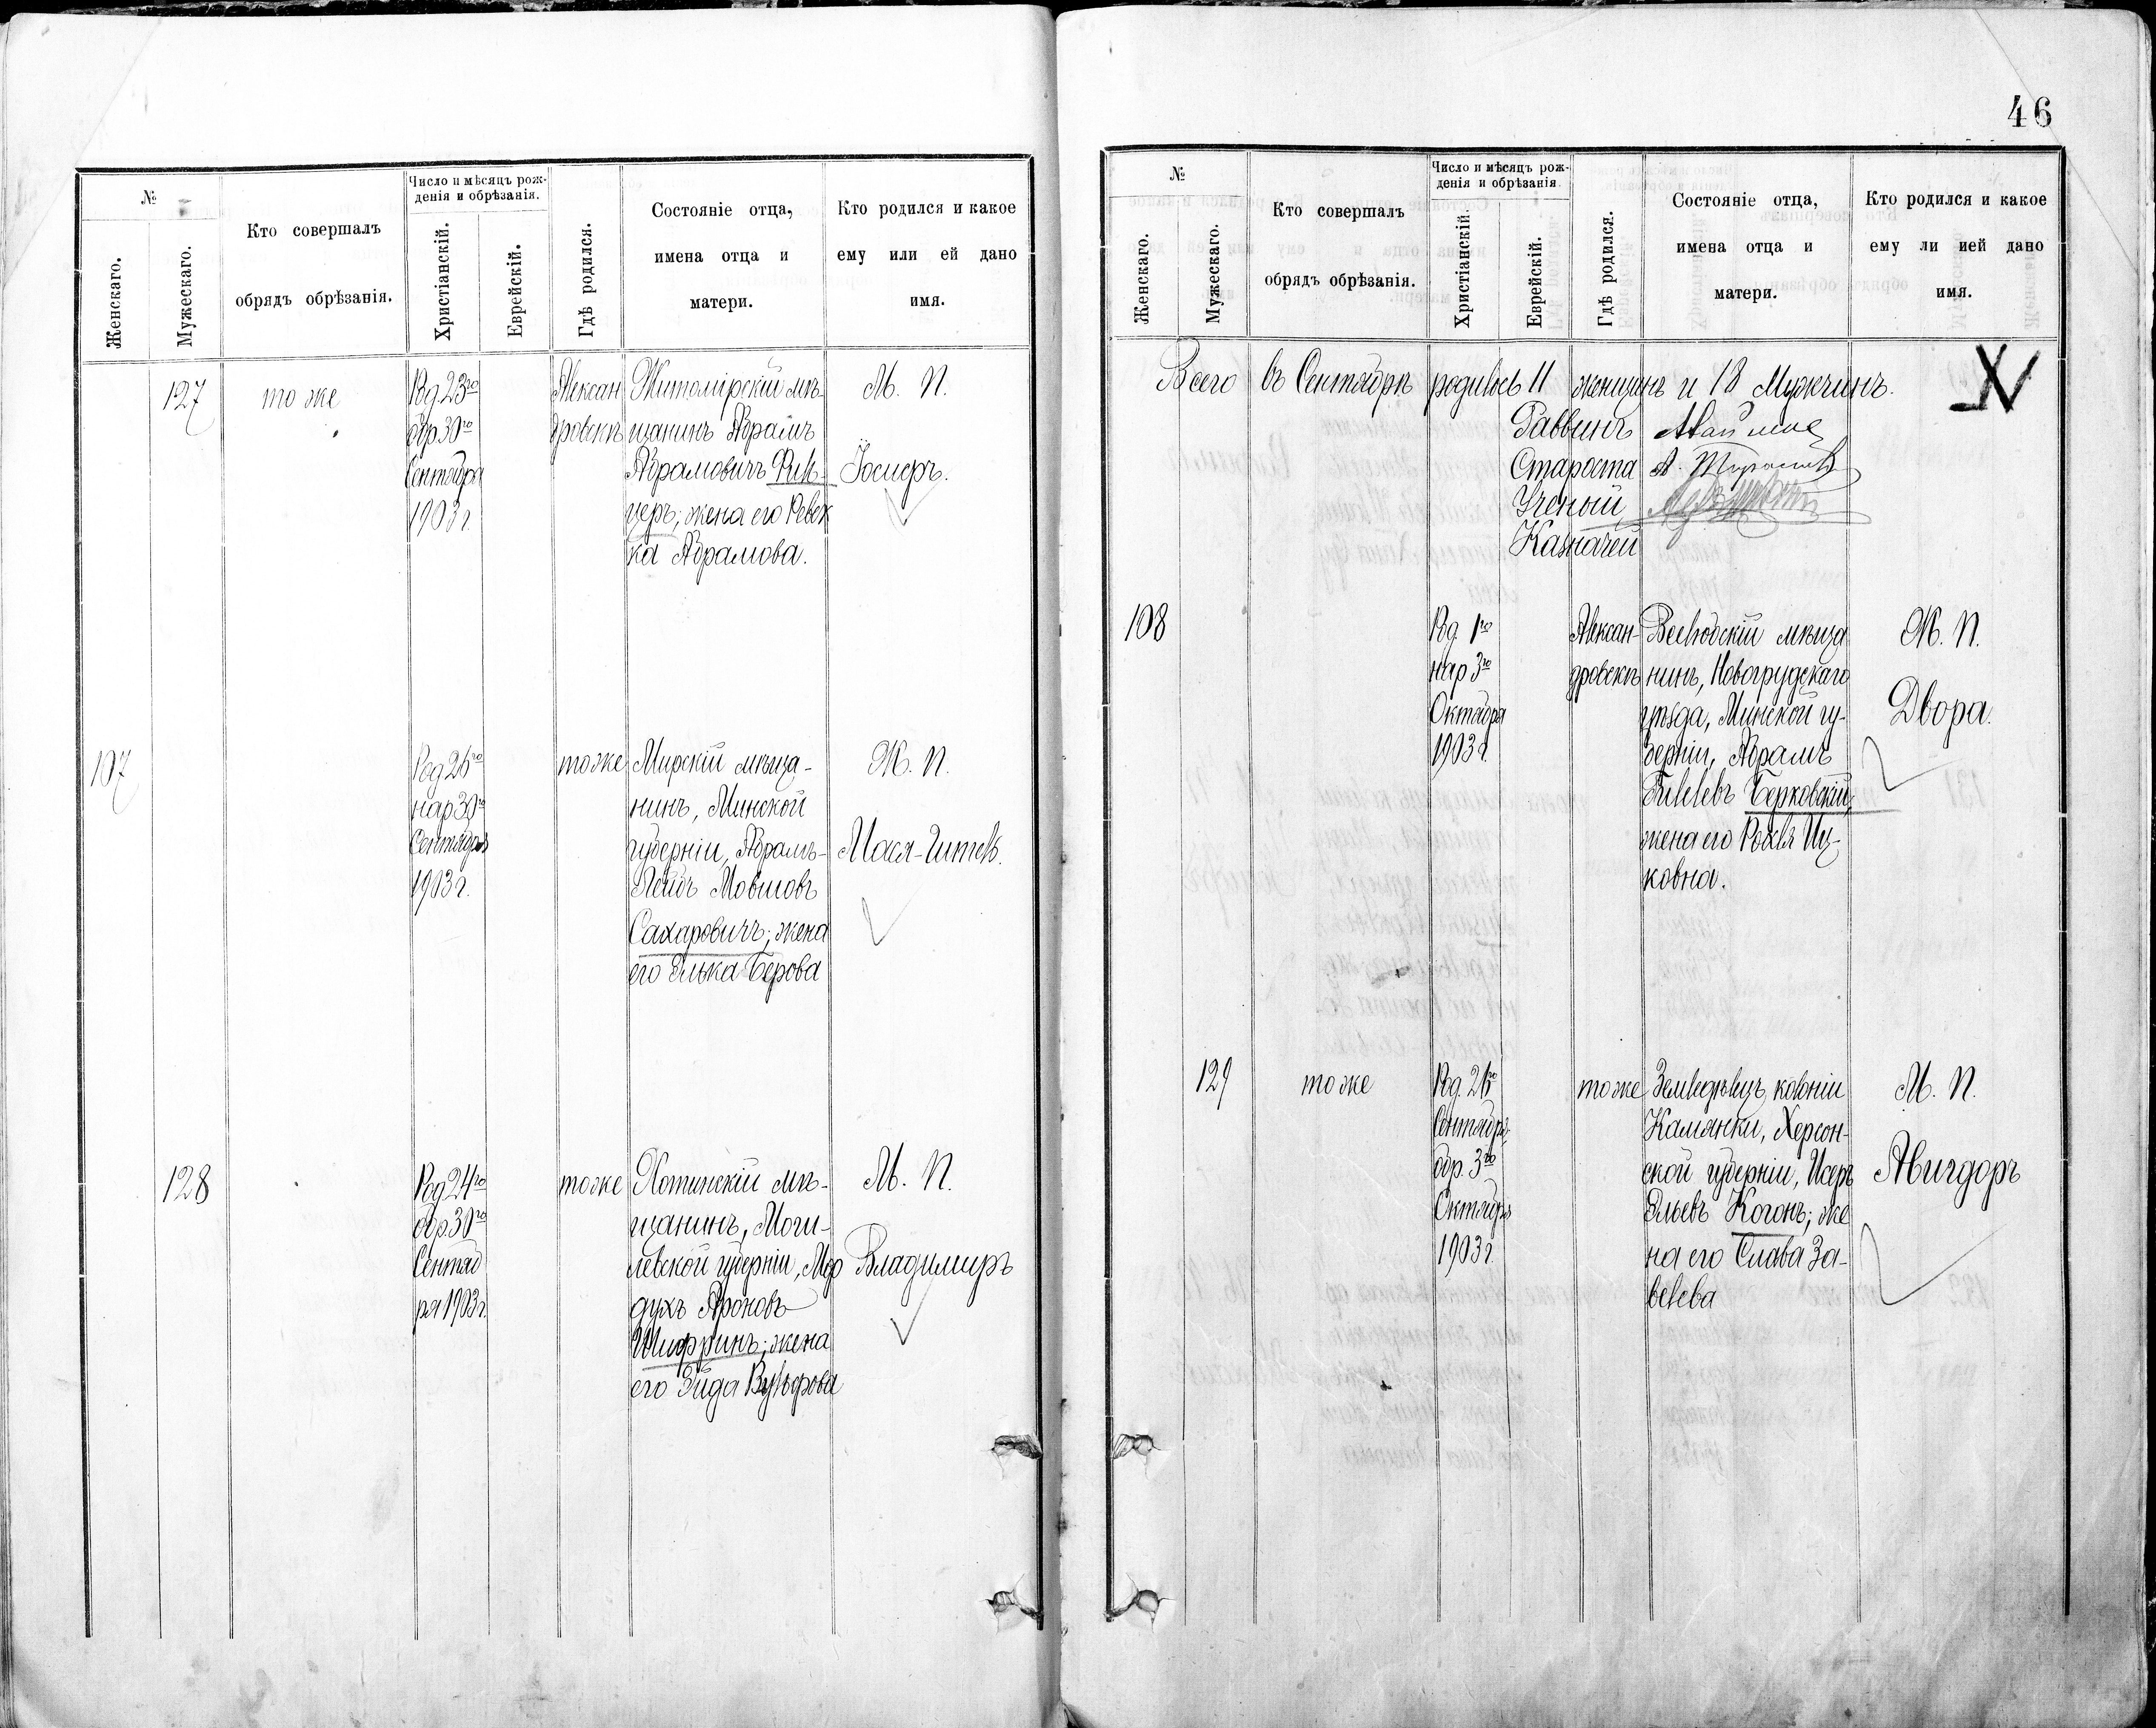 №
Женскаго.
Мужескаго.
Кто совершалъ
обрядъ обрѣзанія.
Число и мѣсяцъ рож-
денія и обрѣзанія.
Христіанскій.
Еврейскій.
Гдѣ родился.
Состояніе отца,
имена отца и
матери.
Кто родился и какое
ему или ей дано
имя.
127
тоже
Род. 23го
обр. 30го
Сентября
1903 г
Алексан
дровскъ
Житомірскій мѣ-
щанинъ Абрамъ
Абрамовичъ
церъ; жена его Ревек
ка Абрамова.
М. П.
Іосифъ.
107
Род 26го
нар 30го
Сентября
1903 г.
тоже
Мирскій мѣща-
нинъ, Минской
губерніи, Абрамъ-
Лейбъ Мовшовъ
Сахаровичъ; жена
его Элька Берова
Ж. П.
Мася-Гитель.
128
Род 24го
обр. 30го
Сентяб
ря 1903 г.
тоже
Хотимскій мѣ-
щанинъ, Моги-
левской губерніи, Мор
духъ Ароновъ
Шифринъ; жена
его Эйда Вульфова
М. П.
Владимиръ
46
№
Женскаго.
Мужескаго.
Кто совершалъ
обрядъ обрѣзанія.
Число и мѣсяцъ рож-
денія и обрѣзанія
Христіанскій.
Еврейскій.
Гдѣ родился.
Состояніе отца,
имена отца и
матери.
Кто родился и какое
ему ли ией дано
имя.
Всего въ Сентябрѣ родилось 11 женщинъ и 18 Мужчинъ.
Раввинъ
Староста
Ученый
Казначей
108
Род. 1го
нар 3го
Октября
1903 г.
Алексан-
дровскъ
мѣща
нинъ, Новогрудскаго
уѣзда, Минской гу-
берніи, Абрамъ
Гилелевъ Берковскій,
жена его Рохля Иц-
ковна.
Ж. П.
Двора.
129
тоже
Род. 26го
Сентября
обр. 3го
Октября
1903 г.
тоже
Земледѣлецъ колоніи
Камянки, Херсон-
ской губерніи, Исеръ
Эльевъ Когонъ; же
на его Слава За-
велева
М. П.
Авигдоръ